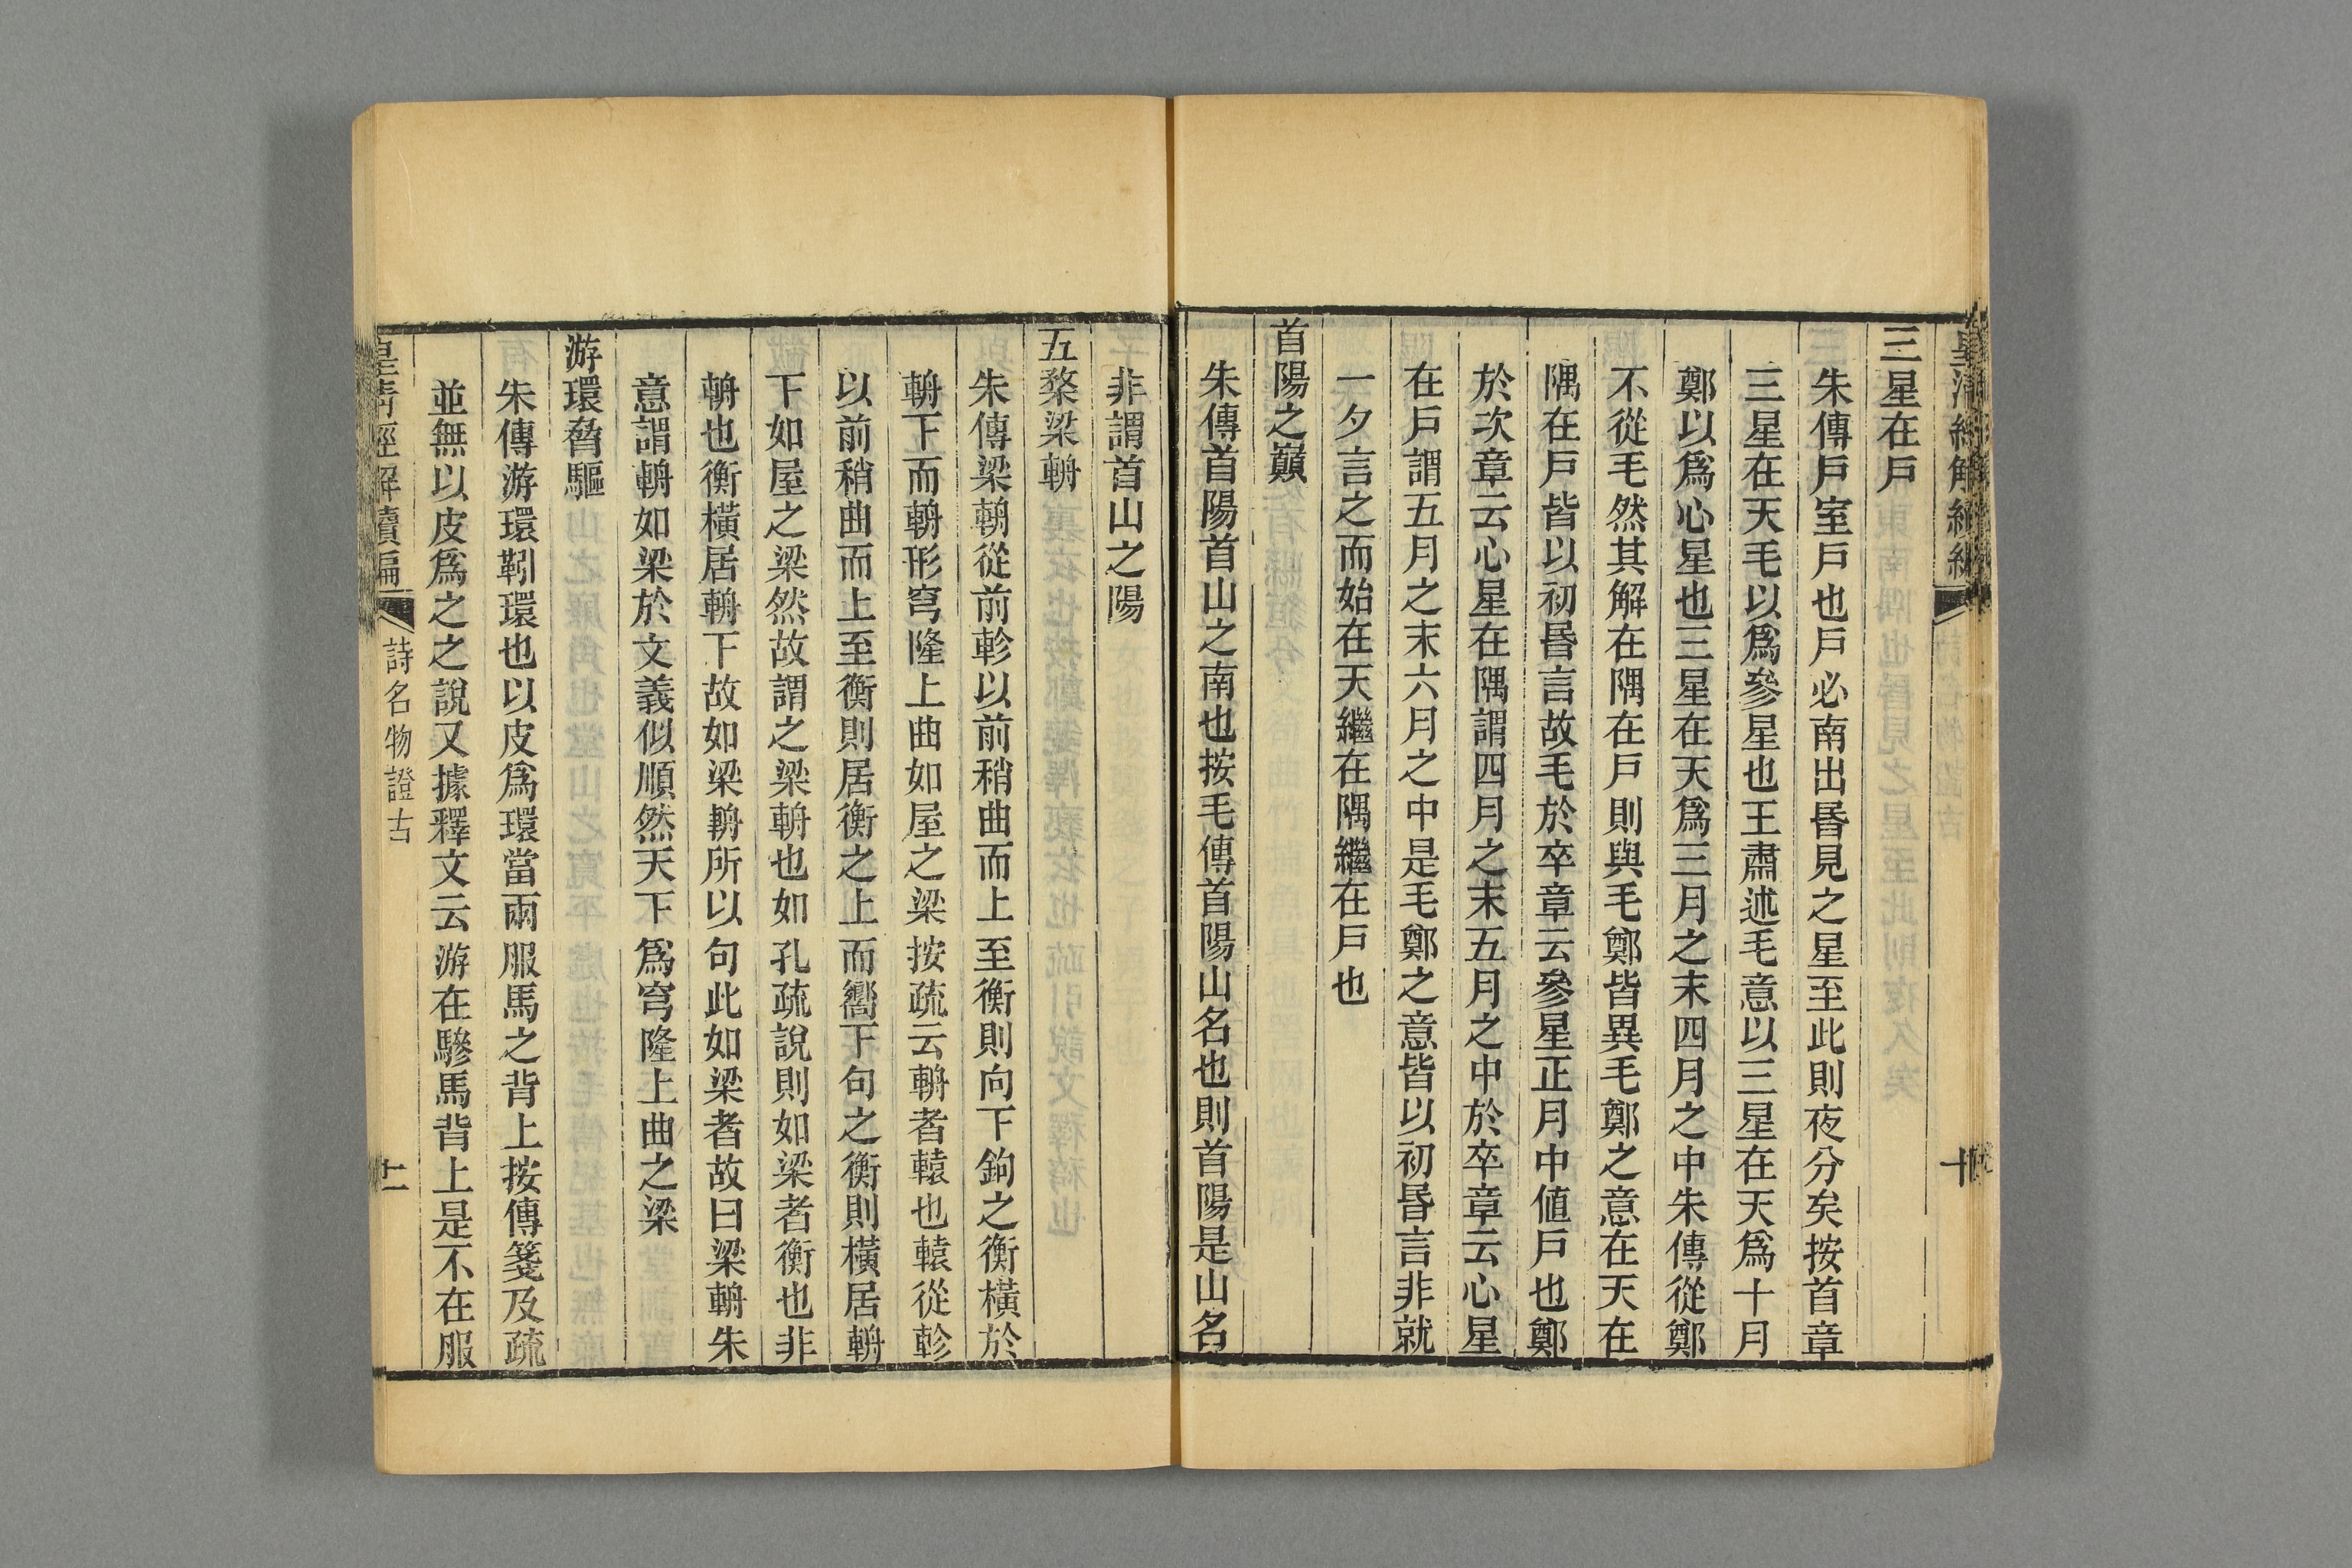 三星在戶
朱傳戶室戶也戶必南出昏見之星至此則夜分矣按首章
三星在天毛以爲參星也王肅述毛意以三星在天爲十月
鄭以爲心星也三星在天爲三月之末四月之中朱傳從鄭
不從毛然其解在隅在戶則與毛鄭皆異毛鄭之意在天在
隅在戶皆以初昏言故毛於卒章云參星正月中値戶也鄭
於次章云心星在隅謂四月之末五月之中於卒章云心星
在戶謂五月之末六月之中是毛鄭之意皆以初昏言非就
一夕言之而始在天繼在隅繼在戶也
首陽之巔
朱傳首陽首山之南也按毛傳首陽山名也則首陽是山名
十
非謂首山之陽
五楘梁輈
朱傳梁輈從前軫以前稍曲而上至衡則向下鉤之衡橫於
輈下而輈形穹隆上曲如屋之梁按疏云輈者轅也轅從軫
以前稍曲而上至衡則居衡之上而嚮下句之衡則橫居輈
下如屋之梁然故謂之梁輈也如孔疏說則如梁者衡也非
輈也衡橫居輈下故如梁輈所以句此如梁者故曰梁輈朱
意謂輈如梁於文義似順然天下爲穹隆上曲之梁
游環脅驅
朱傳游環靷環也以皮爲環當兩服馬之背上按傳箋及疏
並無以皮爲之之說又據釋文云游在驂馬背上是不在服
皇淸經解續編 詩名物證古 十一